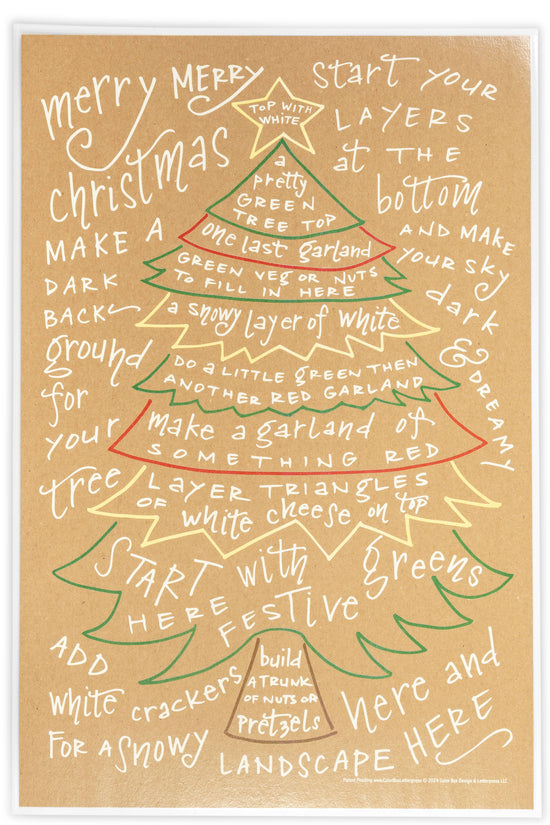 merry MERRY
christmas
start YOUR
LAYERS
at THE
bottom
AND MAKE
YOUR SKY
dark
& DREAMY
MAKE A
DARK
BACK
ground
for
your
tree
TOP WITH
WHITE
a
pretty
GREEN
TREE TOP
one last garland
GREEN VEG OR NUTS
TO FILL IN HERE
a snowy layer of white
DO A LITTLE GREEN THEN
ANOTHER RED GARLAND
make a garland of
SOMETHING RED
LAYER TRIANGLES
OF white cheese on top
START with greens
HERE FESTIVE
build
A TRUNK
OF NUTS OR
pretzels
ADD
white crackers
FOR A SNOWY
LANDSCAPE
here and
HERE
Patent Pending www.ColorBoxLetterpress © 2024 Color Box Design & Letterpress LLC